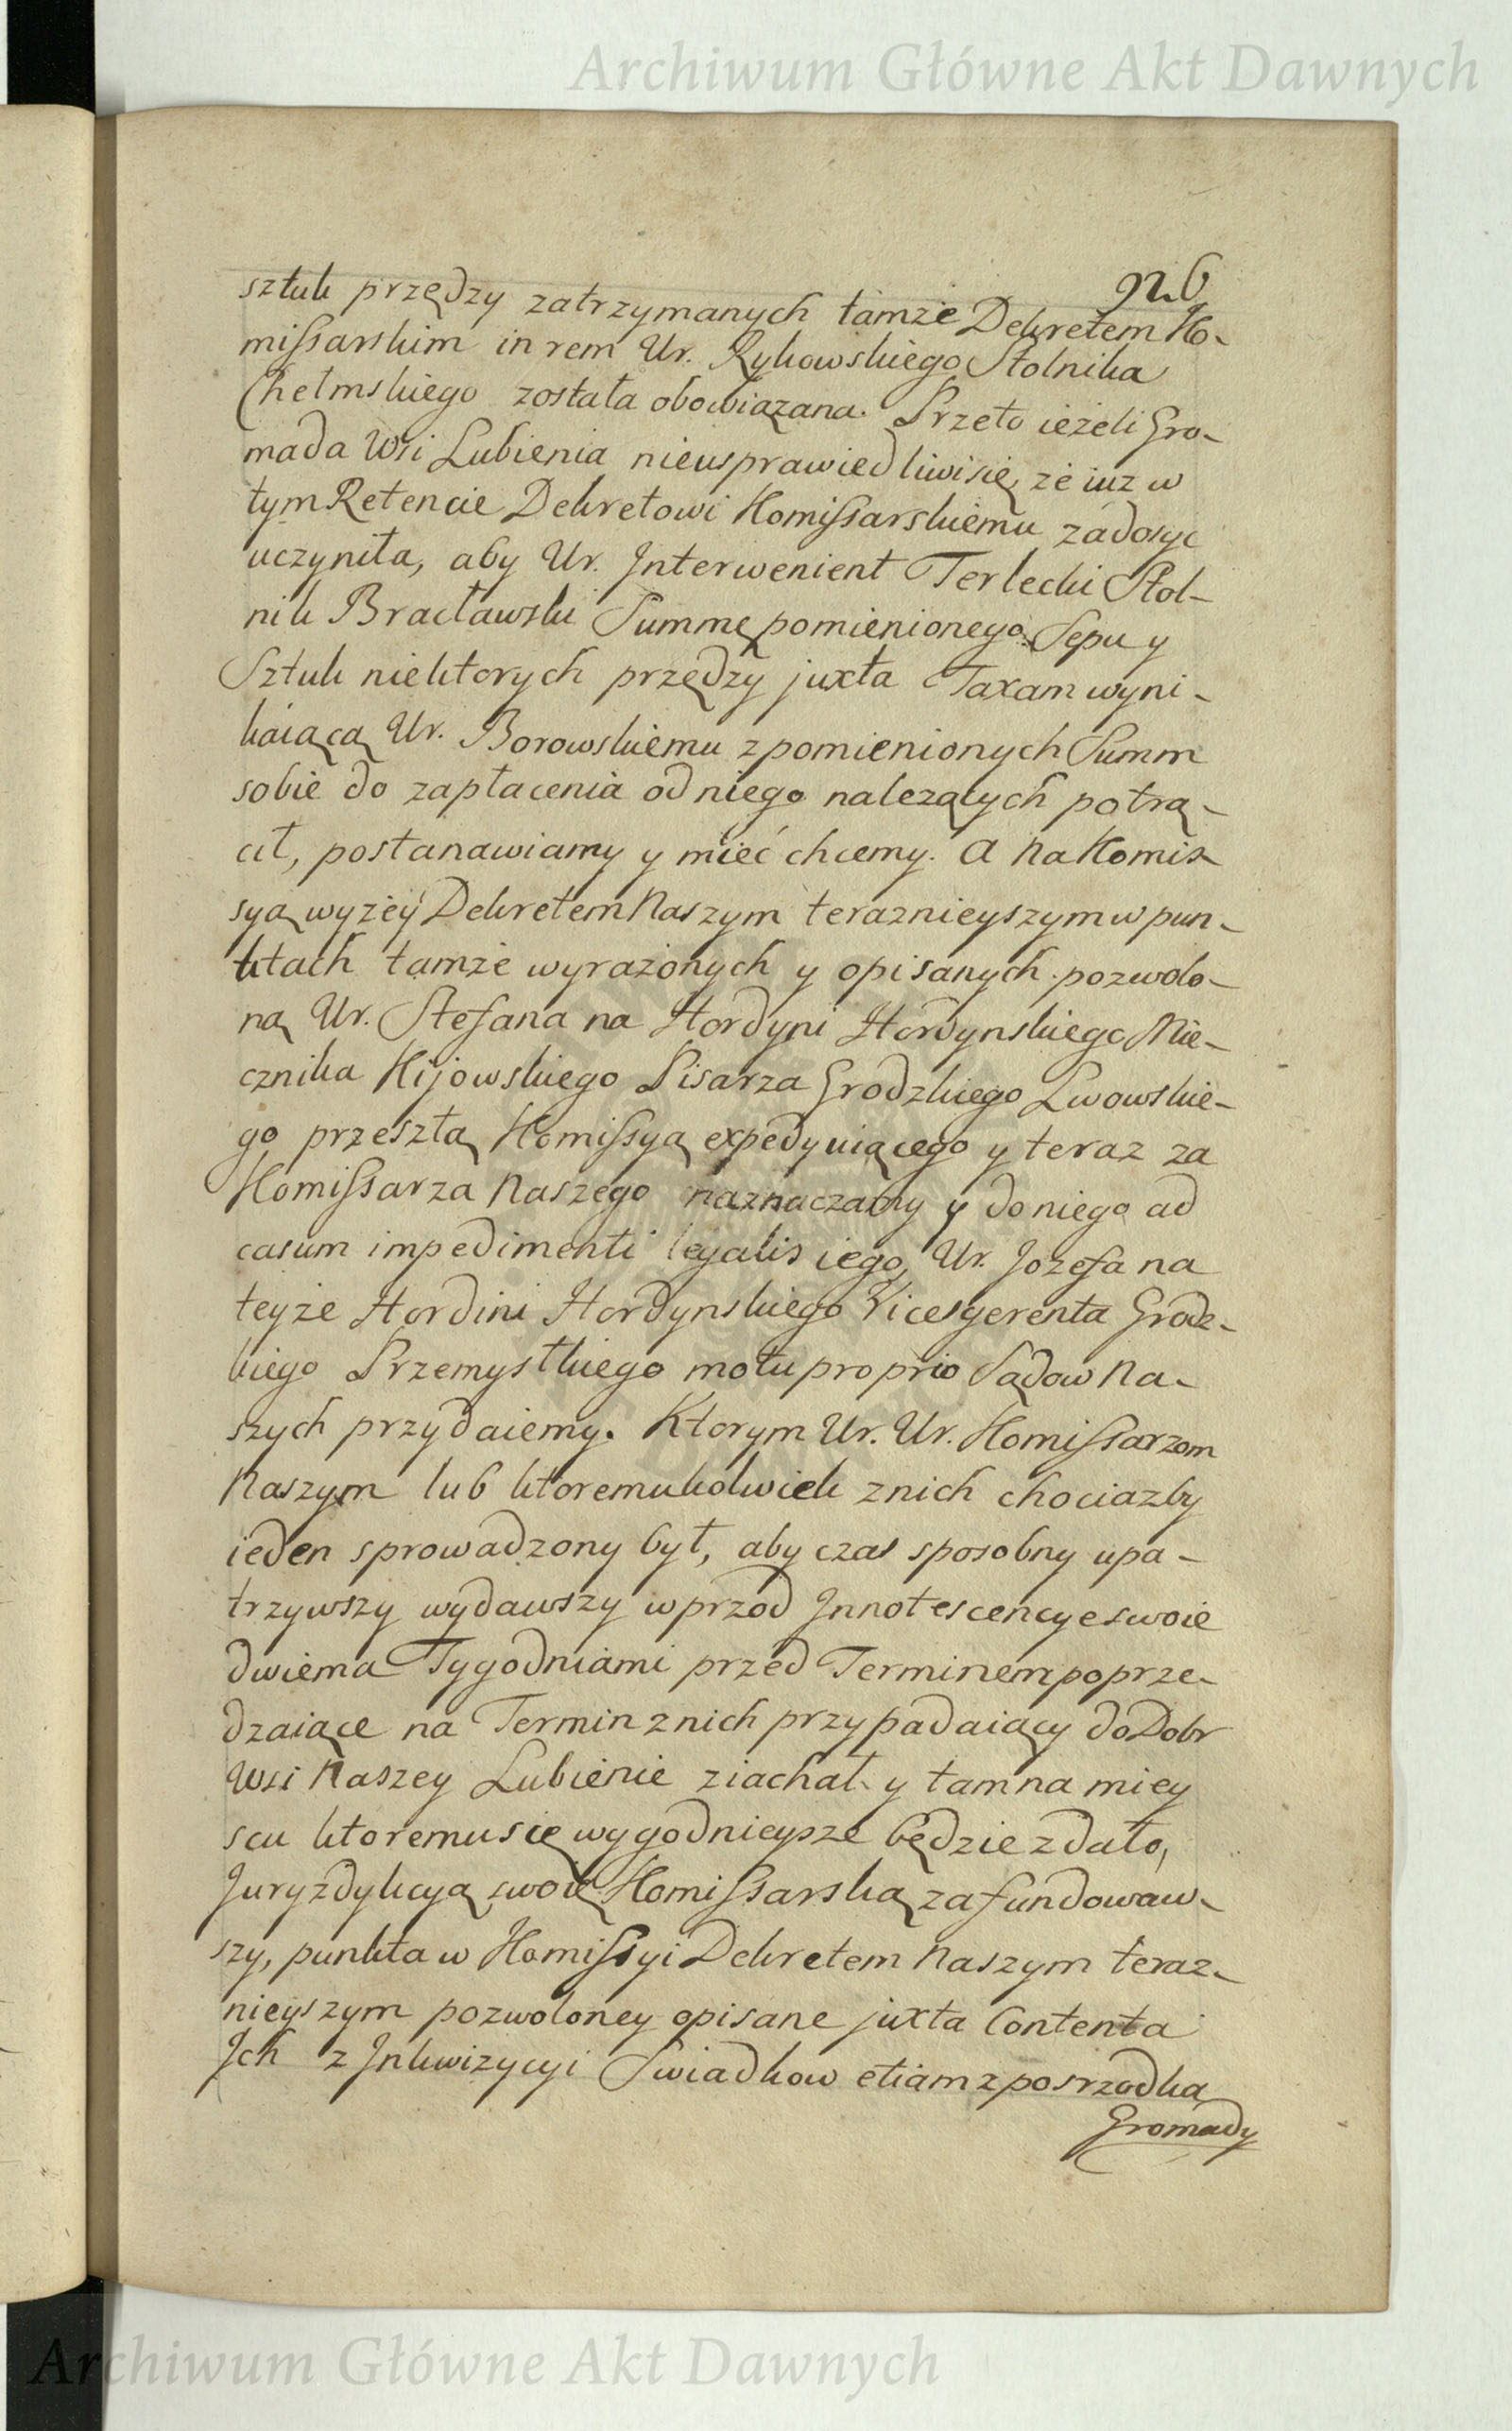 Archiwum Główne Akt Dawnych
926
sztuk przędzy zatrzymanych tamże Dekretem Ko-
missarskim in rem Ur. Rykowskiego Stolnika
Chełmskiego została obowiązana. Przeto ieżeli Gro-
mada Wsi Lubienia nieusprawiedliwi się, że iuż w
tym Retencie Dekretowi Komissarskiemu zadosyc
uczyniła, aby Ur. Interwenient Terlecki Stol-
nik Bracławski Summę pomienionego Sepu y
Sztuk niektorych przędzy juxta Taxam wyni-
kaiącą Ur. Borowskiemu z pomienionych Summ
sobie do zapłacenia od niego nalezących potrą-
cił, postanawiamy y mieć chcemy. A na Komis-
syą wyżey Dekretem Naszym teraznieyszym w pun-
ktach tamże wyrażonych y opisanych pozwolo-
ną Ur. Stefana na Hordyni Hordynskiego Mie-
cznika Kijowskiego Pisarza Grodzkiego Lwowskie-
go przeszłą Komissyą expedyuiącego y teraz za
Komissarza Naszego naznaczamy y do niego ad
casum impedimenti legalis iego, Ur. Jozefa na
teyże Hordini Hordynskiego Vicesgerenta Grodz-
kiego Przemyslkiego motu proprio Sądow Na-
szych przydaiemy. Ktorym Ur. Ur. Komissarzom
Naszym lub ktoremukolwiek z nich chociazby
ieden sprowadzony był, aby czas sposobny upa-
trzywszy wydawszy wprzod Innotescencye swoie
dwiema Tygodniami przed Terminem poprze-
dzaiące na Termin z nich przypadaiący do Dobr
Wsi Naszey Lubienie ziachał y tam na miey
scu ktoremu się wygodnieysze będzie zdało,
Juryzdykcyą swoię Komissarską zafundowaw-
szy, punkta w Komissyi Dekretem Naszym teraz-
nieyszym pozwoloney opisane juxta Contenta
Ich z Inkwizycyi Swiadkow etiam z posrzodka
Gromady
Archiwum Główne Akt Dawnych